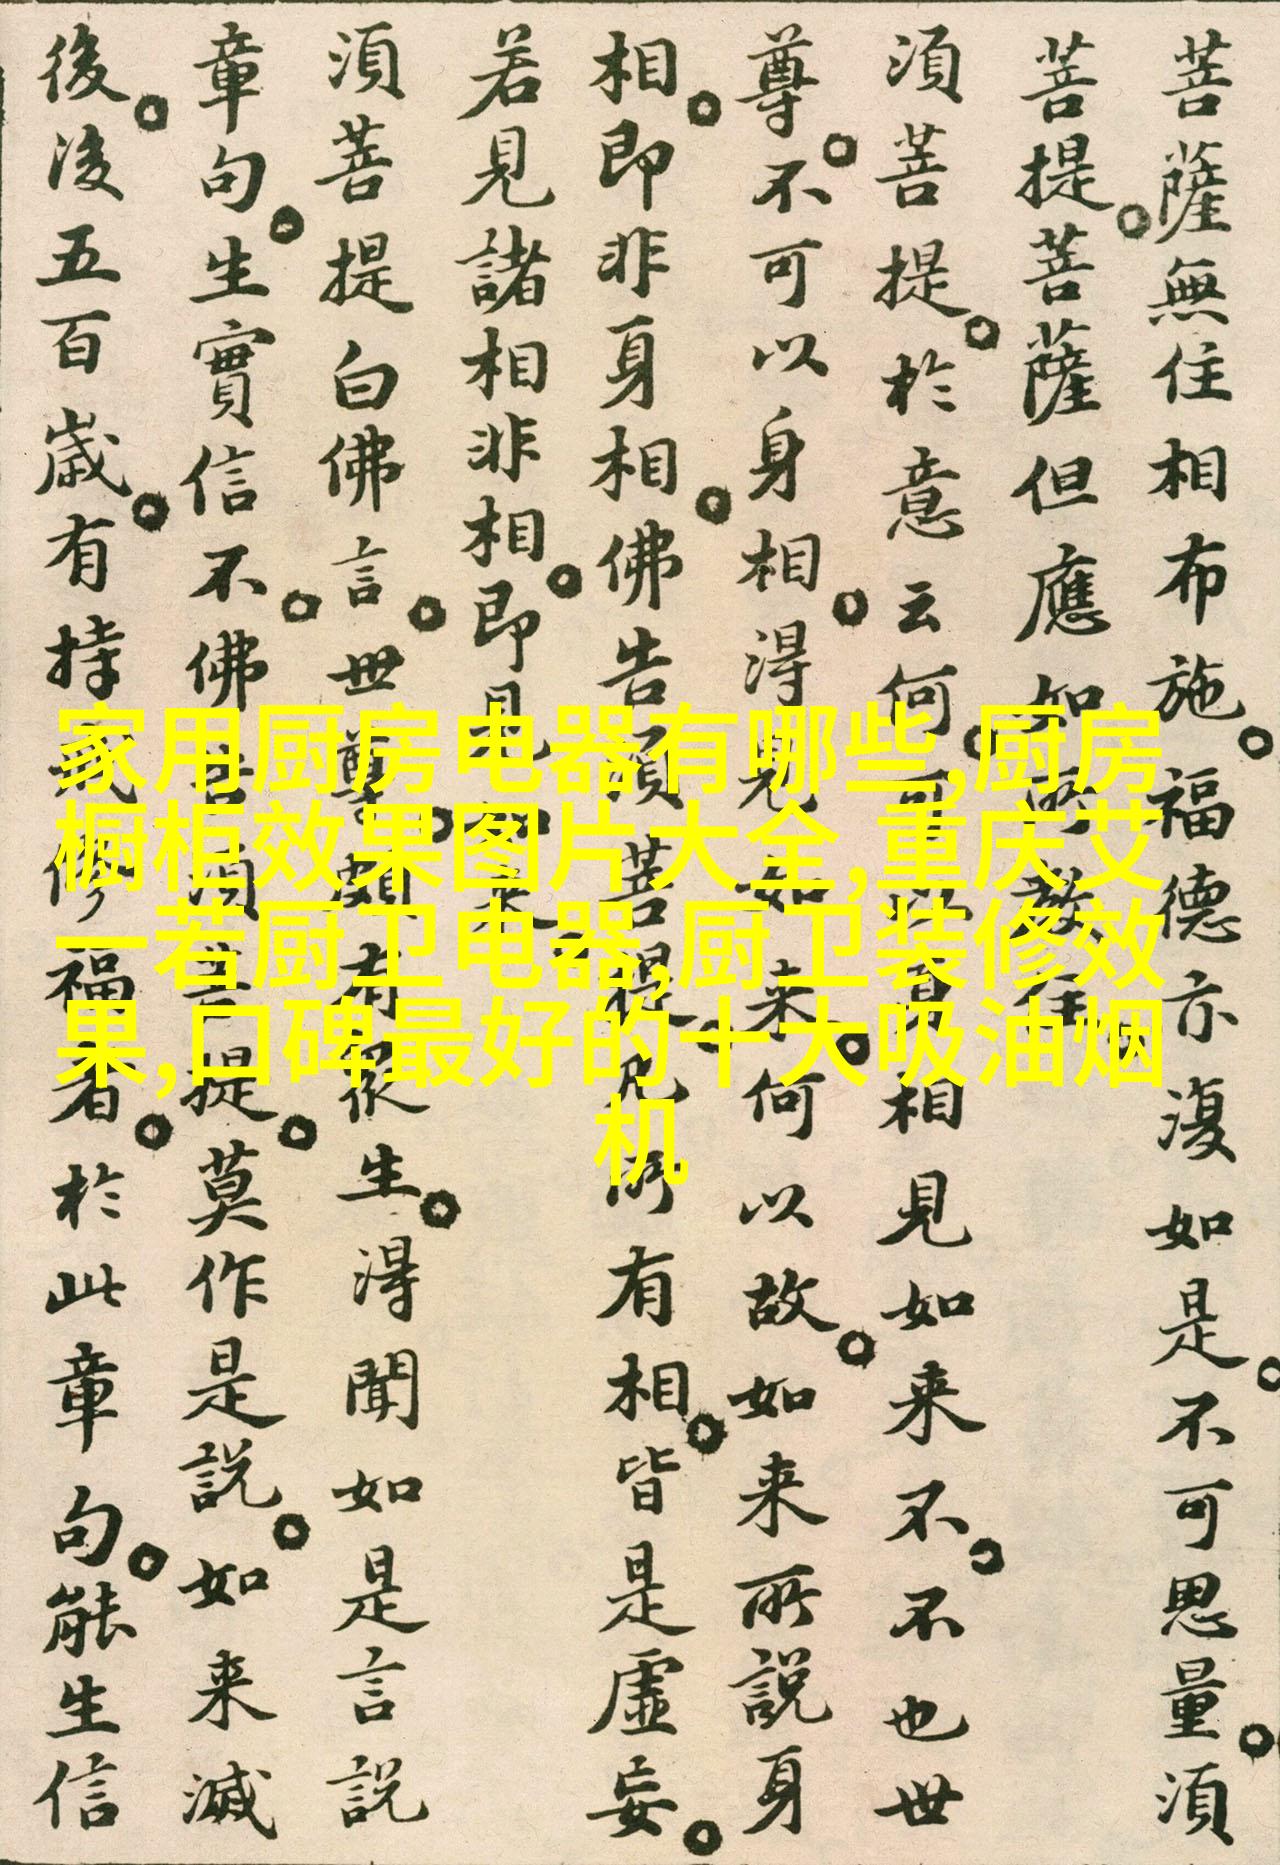 菩薩無住相布施。福德亦復如是。不可思量。須
菩提。菩薩但應如所教住
須菩提。於意云何。可以身相見如来不。不也世
尊。不可以身相。得見如来。何以故。如来所說身
相。即非身相。佛告須菩提。凡所有相。皆是虛妄。
若見諸相非相。即見如来。
須菩提白佛言。世尊。頗有衆生。得聞如是言說
章句。生實信不。佛告須菩提。莫作是說。如来滅
後。後五百歲。有持戒修福者。於此章句。能生信
家用厨房电器有哪些,厨房
橱柜效果图片大全,重庆艾
一若厨卫电器,厨卫装修效
果,口碑最好的十大吸油烟
机